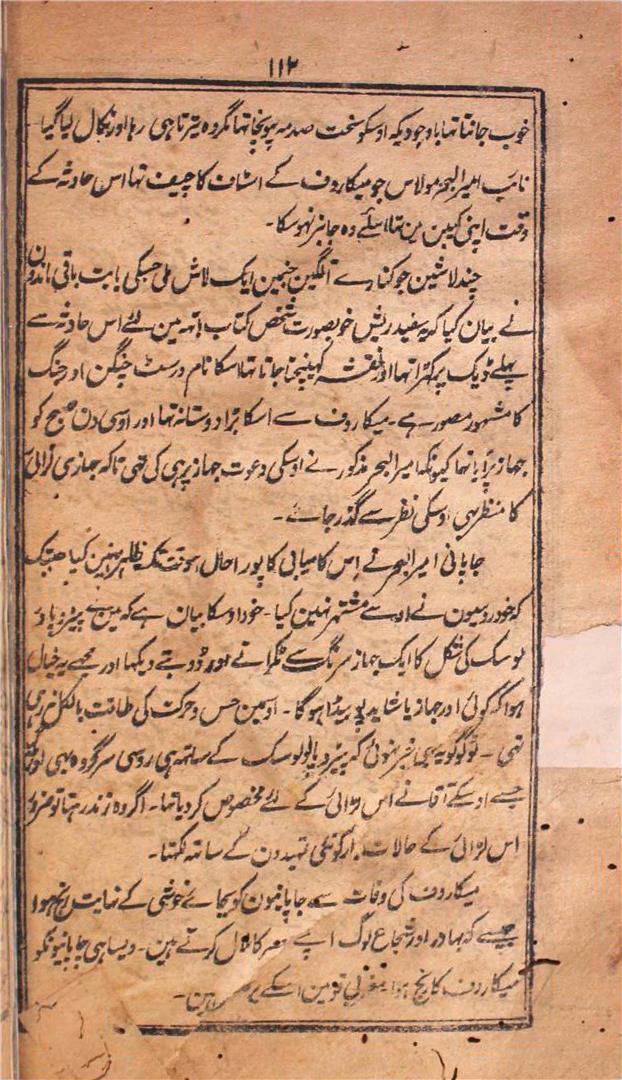 ۱۱۲
خوب جانتا تہا باوجودیکہ اوسکو سخت صدمہ پہونچا تہا مگر وہ تیرتا ہی رہا اور نکال لیا گیا۔
نائب امیر البحر مولاس جو میکاروف کے اسٹاف کا چیف تہا اس حادثہ کے
وقت اپنی کیبن مین تہا اسلئے وہ جانبر نہوسکا۔
چند لاشین جو کنارے آلگین جنمین ایک لاش ملی جسکی بابت باقی ماندون
نے بیان کیا کہ یہ سفید ریش خوبصورت شخص کتاب ہاتہہ مین لئے اس حادثہ سے
پہلے ڈیک پر کہڑا تہا اور نقشہ کہینچتا جاتا تہا اسکا نام ورسٹ چیگن اور جنگ
کا مشہور مصور ہے۔ میکاروف سے اسکا بڑا دوستانہ تہا اور اوسی دن صبح کو
جہاز پر آیا تہا کیونکہ امیر البحر مذکور نے اوسکی دعوت جہاز پر ہی کی تہی تاکہ جہازی لڑائی
کا منظر بہی اوسکی نظر سے گذر جاے۔
جاپانی امیر البحر نے اس کامیابی کا پورا حال اوسوقت تک ظاہر نہین کیا جبتک
کہ خود روسیون نے اوسے مشتہر نہین کیا۔ خود اوسکا بیان ہے کہ مین نے پیٹروپاو
لوسک کی شکل کا ایک جہاز سرنگ سے ٹکراتے اور ڈوبتے دیکہا اور مجہے یہ خیال
ہوا کہ کوئی اور جہاز یا شاید پوبیڈا ہوگا۔ اوسمین حس و حرکت کی طاقت بالکل نرہی
تہی۔ ٹوگو کو یہ بہی خبر نہوئی کہ پیٹروپاولوسک کے ساتہہ ہی روسی سرگروہ بہی
جسے اوسکے آقا نے اس لڑائی کے لئے مخصوص کردیا تہا۔ اگر وہ زندہ رہتا تو ضرور
اس لڑائی کے حالات کے ساتہہ لکہتا۔
میکاروف کی وفات سے جاپانیون کو بجائے خوشی کے نہایت رنج ہوا
جیسے کہ بہادر اور شجاع لوگ اپنے ہمعصر کا ملال کرتے ہین۔ ویسا ہی جاپانیونکو
میکاروف کا رنج ہوا مغربی قومین اسکے ہین۔